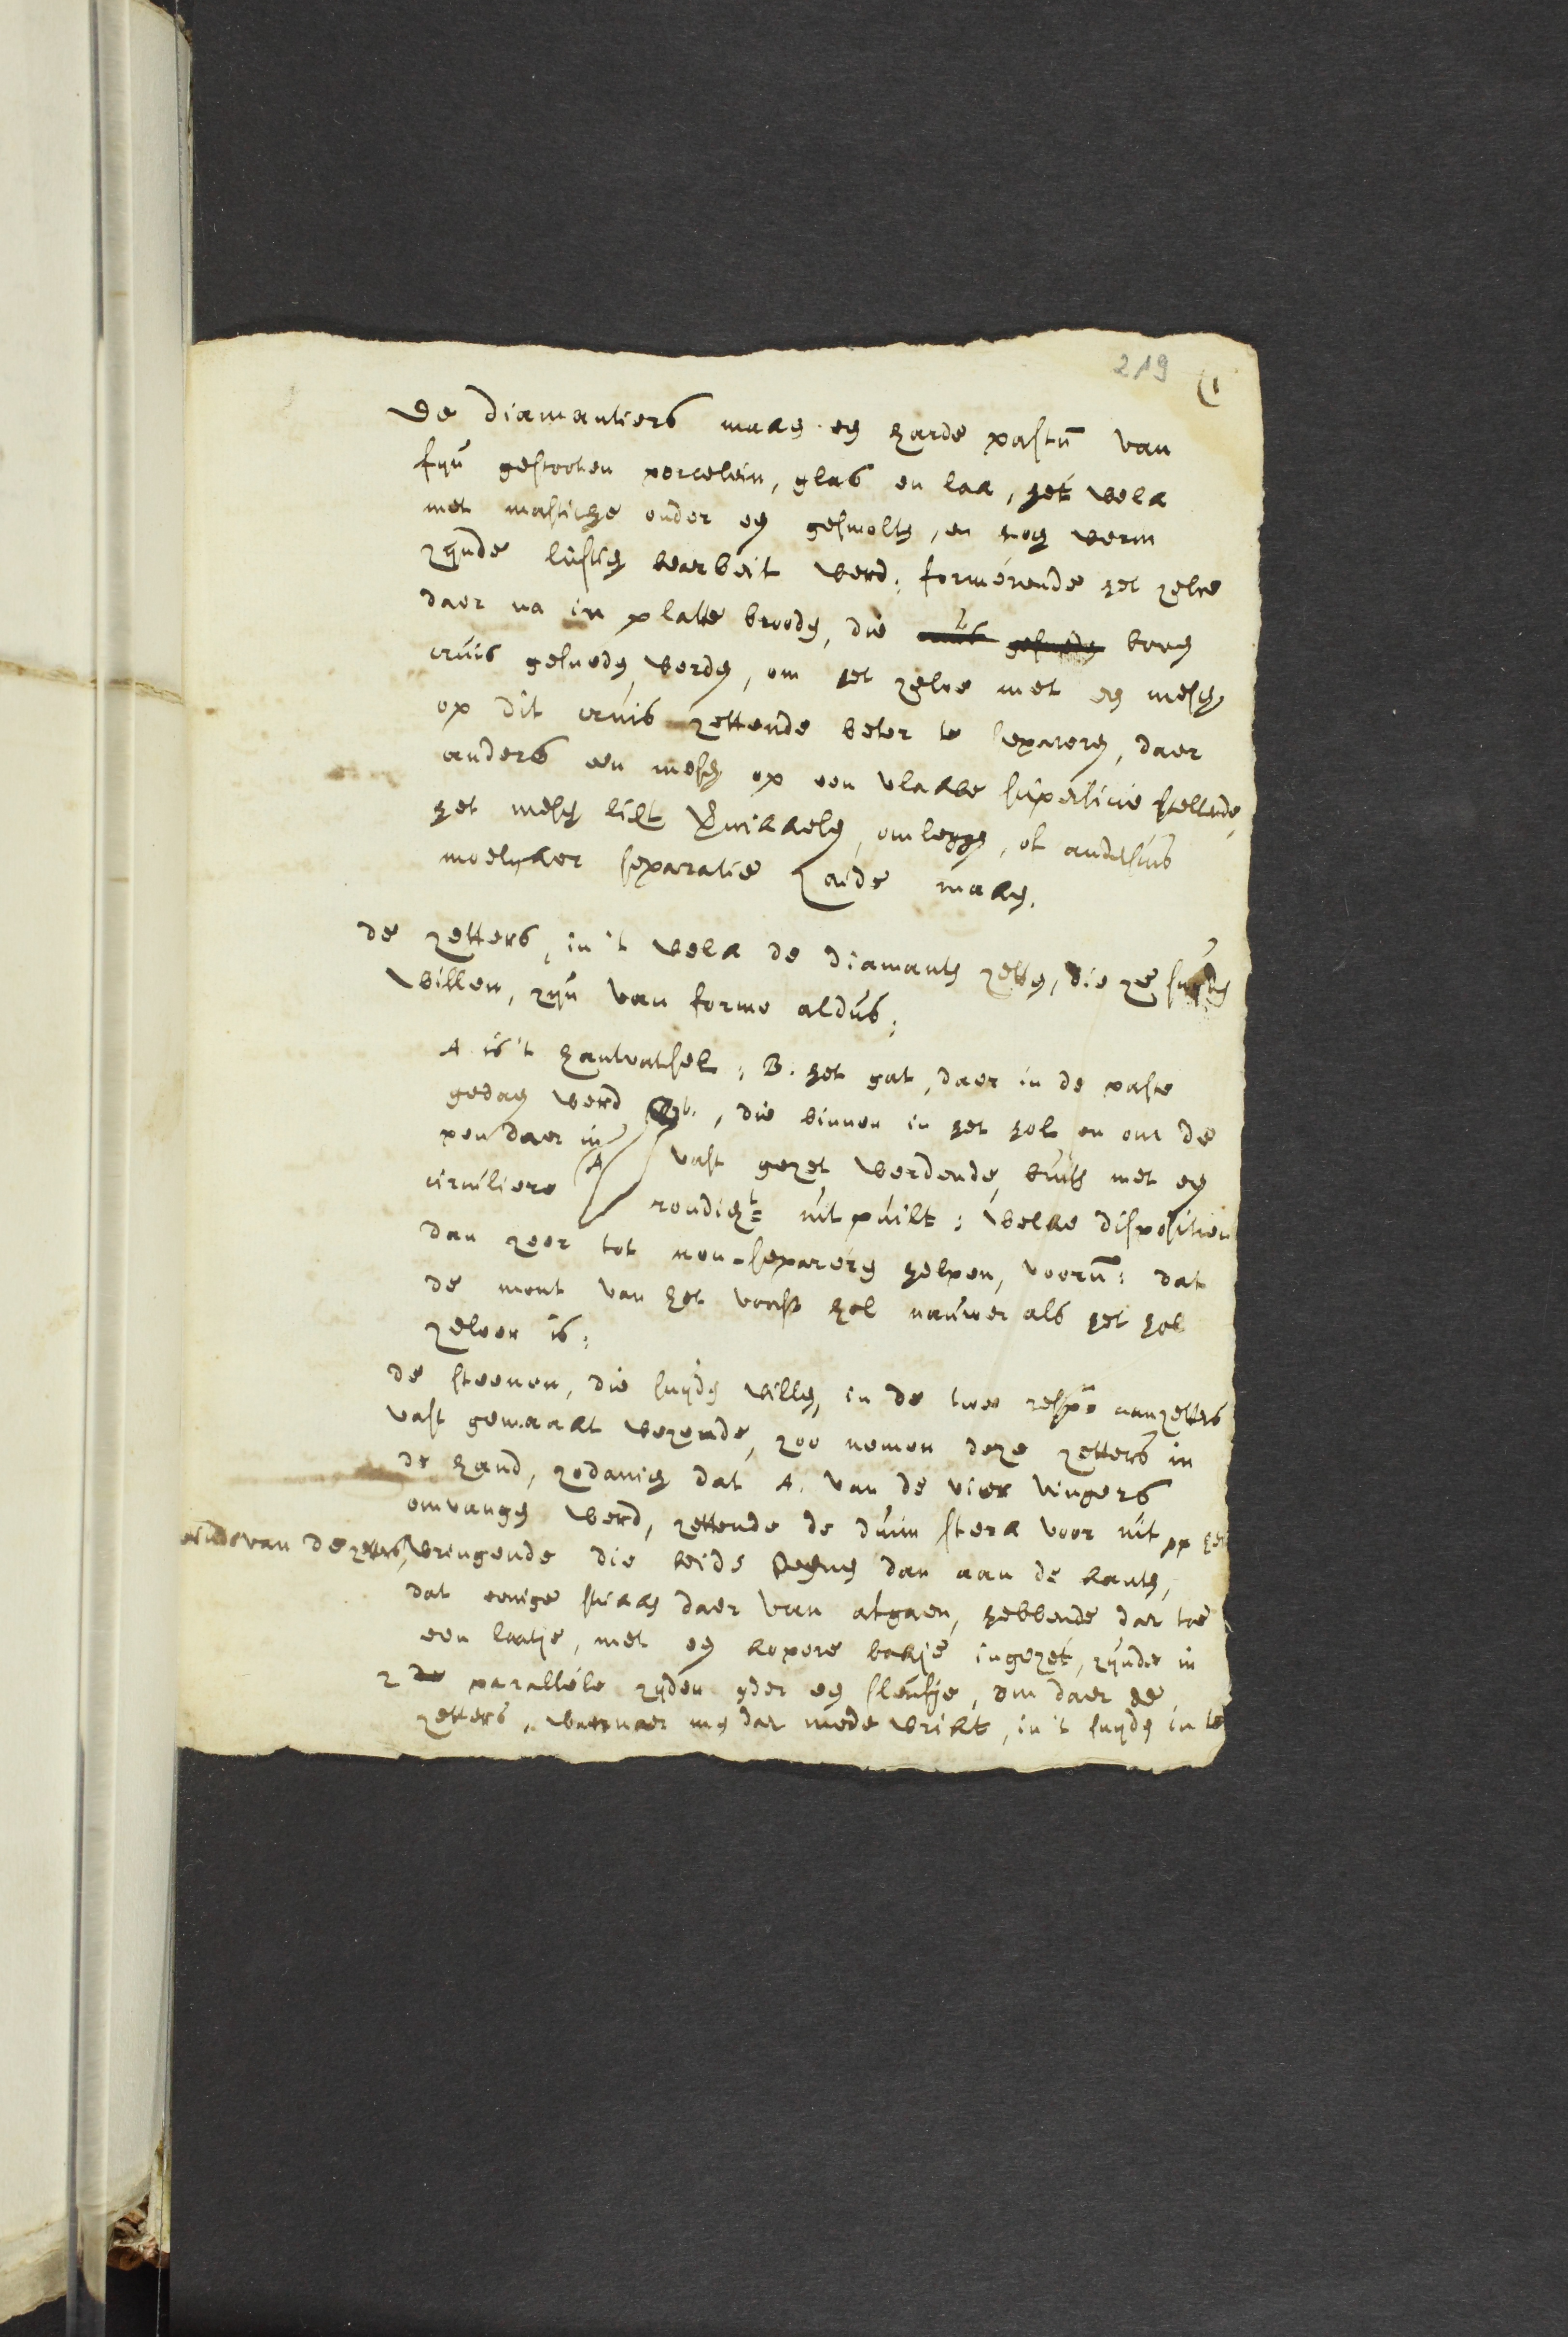 219 (1
De diamantiers maken een harde pastum van
fyn gestooten porcelein, glas en lak, het welk
met mastiche onder een gesmolten, en nog werm
zynde lustig bearbeit werd; formérende het zelve
daer na in platte brooden, die boven
cruis gesneden werden, om het zelve met een mesch
op dit cruis zettende beter te separeren, daer
anders een mesch op een vlakke superficie stellende,
het mesch licht kwikkelen, omleggen, of andersins
moelyker separatie zoude maken.
de zetters, in 't welk de diamanten zetten, die ze snyden
willen, zyn van forme aldus;
A is 't hantvatsel; B. het gat, daer in de paste
gedaen werd, die binnen in het hol en om de
pen daer in A vast gezet werdende, buiten met een
circuliere rondicht= uit puilt; welke disposition
dan zeer tot non-separeren helpen, voorn: dat
de mont van het voorsz hol nauwer als het hol
zelven is;
de steenen, die snyden willen, in de twee resp=e aanzetters
vast gemaakt wezende, zoo nemen deze zetters in
de hand, zodanig dat A. van de vier vingers
omvangen werd, zettende de duim sterk voor uit op het
einde van de zetters, wringende die beide tegens dan aan de kanten,
dat eenige stukken daer van afgaen, hebbende daer toe
een laatje, met een kopere bakje ingezet, zynde in
2 de paralléle zyden yder een sleufje, om daer de
zetters, wanneer men daer mede wrikt, in 't snyden in te